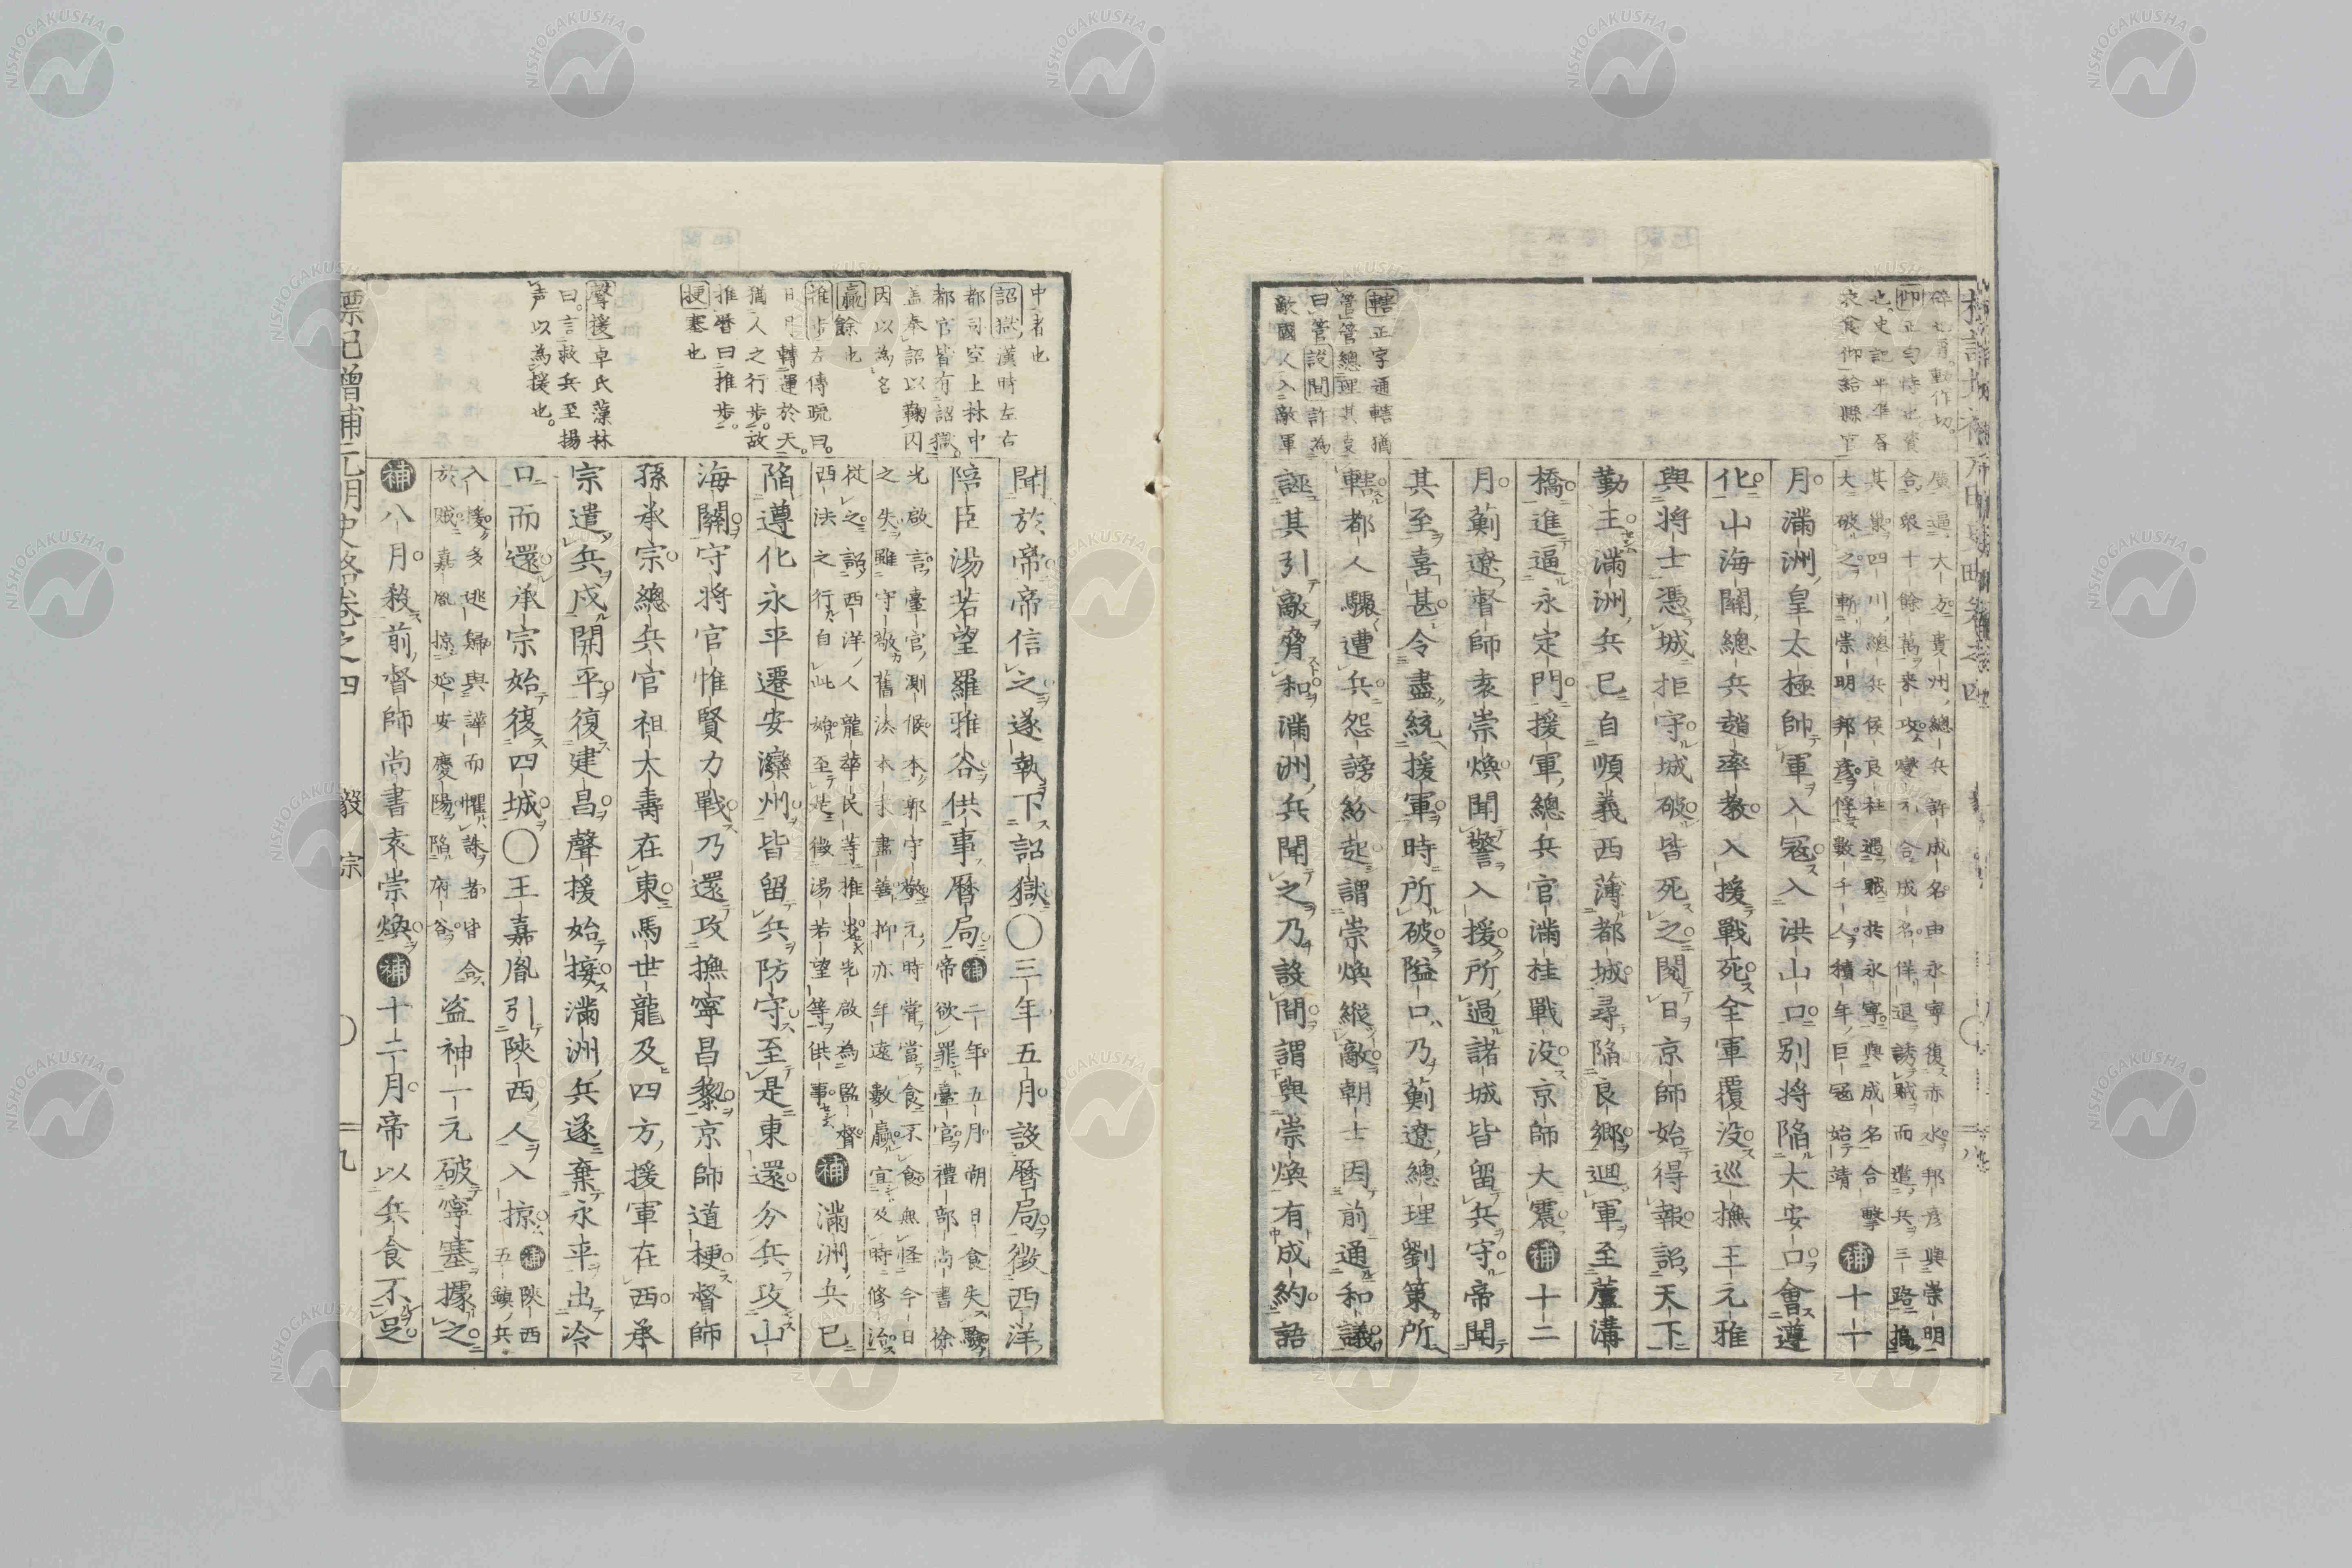 碎也
仰正勻恃也資
也史記平準百
衣食仰給縣官
轄正字通轄猶
管管總理其
曰管設間詐為
敵國人入敵軍
廣逼大方貴州總兵許成名由永寧復赤水邦彦與崇明
合衆十餘萬來攻
成名佯退誘賊而遣兵三路
其巢四川總兵侯良柱遇賊共永寧與成名合擊
大破之斬崇明邦彦俘數千人積年巨冦始靖
補十一
月滿洲皇太極帥軍入冦入洪山口別將陷大安口會遵
化山海關總兵趙率教入援戰死全軍覆没巡撫王元雅
與將士憑城拒守城破皆死之閲日京師始得報詔天下
勤王滿洲兵已自順義西薄都城尋陷良郷廻軍至蘆溝
橋進逼永定門援軍總兵官滿桂戰没京師大震補十二
月薊遼督師袁崇煥聞警入援所過諸城皆留兵守帝聞
其至喜甚令盡統援軍時所破隘口乃薊遼總理劉策所
轄都人驟遭兵怨謗紛起謂崇煥縱敵朝士因前通和議
誣其引敵脅和滿洲兵聞之乃設間謂與崇煥有成約語
中者也
詔獄漢時左右
都司空上林中
都官皆有詔獄
盖奉詔以鞠囚
因以為名
贏餘也
推歩左傳疏曰
日月轉運於天
猶人之行歩故
推暦曰推歩
梗塞也
聲援卓氏藻林
曰言救兵至揚
声以為援也
聞於帝帝信之遂執下詔獄〇三年五月設暦局徴西洋
陪臣湯若望羅雅谷供事暦局補
二年五月朔日食失驗
帝欲罪臺官禮部尚書徐
光啟言臺官測候本郭守敬元時嘗當食不食無怪今日
之失雖守敬舊法本未盡善抑亦年遠數贏宜及時修治
從之詔西洋人龍華民等推歩光啟為監督
西法之行自此始至是徴湯若望等供事
補滿洲兵已
陷遵化永平遷安灤州皆留兵防守至是東還分兵攻山
海關守將官惟賢力戰乃還攻撫寧昌黎京師道梗督師
孫承宗總兵官祖大壽在東馬世龍及四方援軍在西承
宗遣兵戍開平復建昌聲援始接滿洲兵遂棄永平出冷
口而還承宗始復四城〇王嘉胤引陝西人入掠補
陝西
五鎮兵
入援多逃歸與譁而懼誅者皆合
於賊嘉胤掠延安慶陽陷府谷
盜神一元破寧塞據之
補八月殺前督師尚書袁崇煥補十二月帝以兵食不足
標記増補元明史略巻之四
毅宗
〇
二九